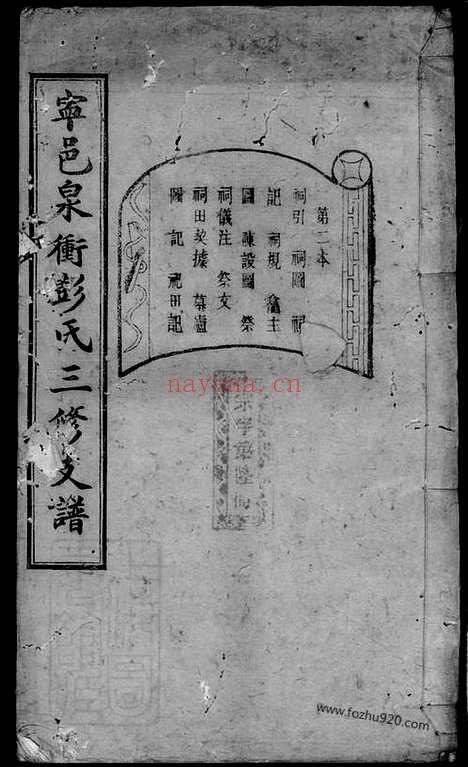 甯邑泉衝彭氏三修支譜
第二本
祠引 祠圖 祠
記 祠規 龕主
圖 陳設圖 祭
祠儀注 祭文
祠田契據 墓廬
圖 記 祀田記
nayona.cn
www.fozhu920.com